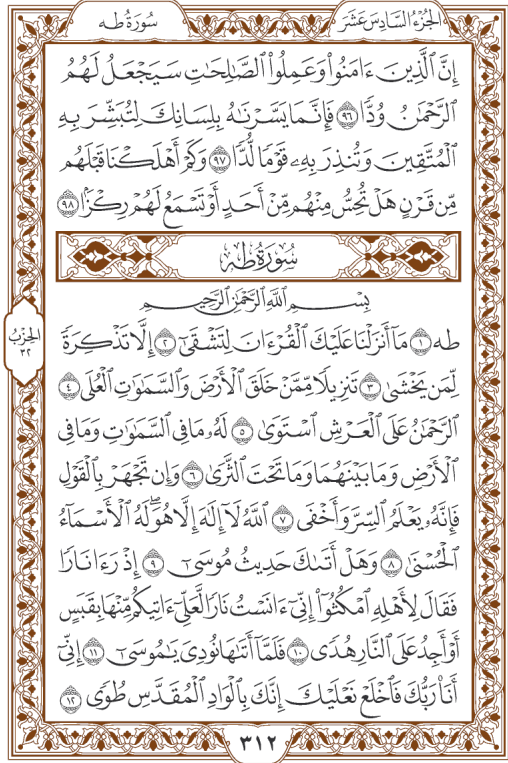 الجُزْءُ السَّادِسَ عَشَرَ
سُورَةُ طه
إِنَّ ٱلَّذِينَ ءَامَنُوا۟ وَعَمِلُوا۟ ٱلصَّٰلِحَٰتِ سَيَجْعَلُ لَهُمُ
ٱلرَّحْمَٰنُ وُدًّا ٩٦ فَإِنَّمَا يَسَّرْنَٰهُ بِلِسَانِكَ لِتُبَشِّرَ بِهِ
ٱلْمُتَّقِينَ وَتُنذِرَ بِهِۦ قَوْمًا لُّدًّا ٩٧ وَكَمْ أَهْلَكْنَا قَبْلَهُم
مِّن قَرْنٍ هَلْ تُحِسُّ مِنْهُم مِّنْ أَحَدٍ أَوْ تَسْمَعُ لَهُمْ رِكْزًۢا ٩٨
سُورَةُ طه
بِسْمِ ٱللَّهِ ٱلرَّحْمَٰنِ ٱلرَّحِيمِ
طه ١ مَآ أَنزَلْنَا عَلَيْكَ ٱلْقُرْءَانَ لِتَشْقَىٰٓ ٢ إِلَّا تَذْكِرَةً
لِّمَن يَخْشَىٰ ٣ تَنزِيلًا مِّمَّنْ خَلَقَ ٱلْأَرْضَ وَٱلسَّمَٰوَٰتِ ٱلْعُلَى ٤
ٱلرَّحْمَٰنُ عَلَى ٱلْعَرْشِ ٱسْتَوَىٰ ٥ لَهُۥ مَا فِى ٱلسَّمَٰوَٰتِ وَمَا فِى
ٱلْأَرْضِ وَمَا بَيْنَهُمَا وَمَا تَحْتَ ٱلثَّرَىٰ ٦ وَإِن تَجْهَرْ بِٱلْقَوْلِ
فَإِنَّهُۥ يَعْلَمُ ٱلسِّرَّ وَأَخْفَى ٧ ٱللَّهُ لَآ إِلَٰهَ إِلَّا هُوَۖ لَهُ ٱلْأَسْمَآءُ
ٱلْحُسْنَىٰ ٨ وَهَلْ أَتَىٰكَ حَدِيثُ مُوسَىٰٓ ٩ إِذْ رَءَا نَارًا
فَقَالَ لِأَهْلِهِ ٱمْكُثُوٓا۟ إِنِّىٓ ءَانَسْتُ نَارًا لَّعَلِّىٓ ءَاتِيكُم مِّنْهَا بِقَبَسٍ
أَوْ أَجِدُ عَلَى ٱلنَّارِ هُدًى ١٠ فَلَمَّآ أَتَىٰهَا نُودِىَ يَٰمُوسَىٰٓ ١١ إِنِّىٓ
أَنَا۠ رَبُّكَ فَٱخْلَعْ نَعْلَيْكَ إِنَّكَ بِٱلْوَادِ ٱلْمُقَدَّسِ طُوًى ١٢
الحِزْبُ
٣٢
٣١٢